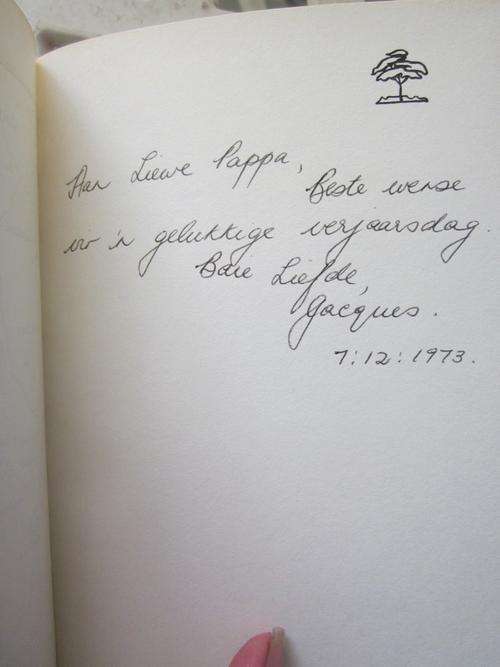 Aan Liewe Pappa,
Beste wense
vir 'n gelukkige verjaarsdag.
Baie Liefde,
Jacques.
7:12:1973.